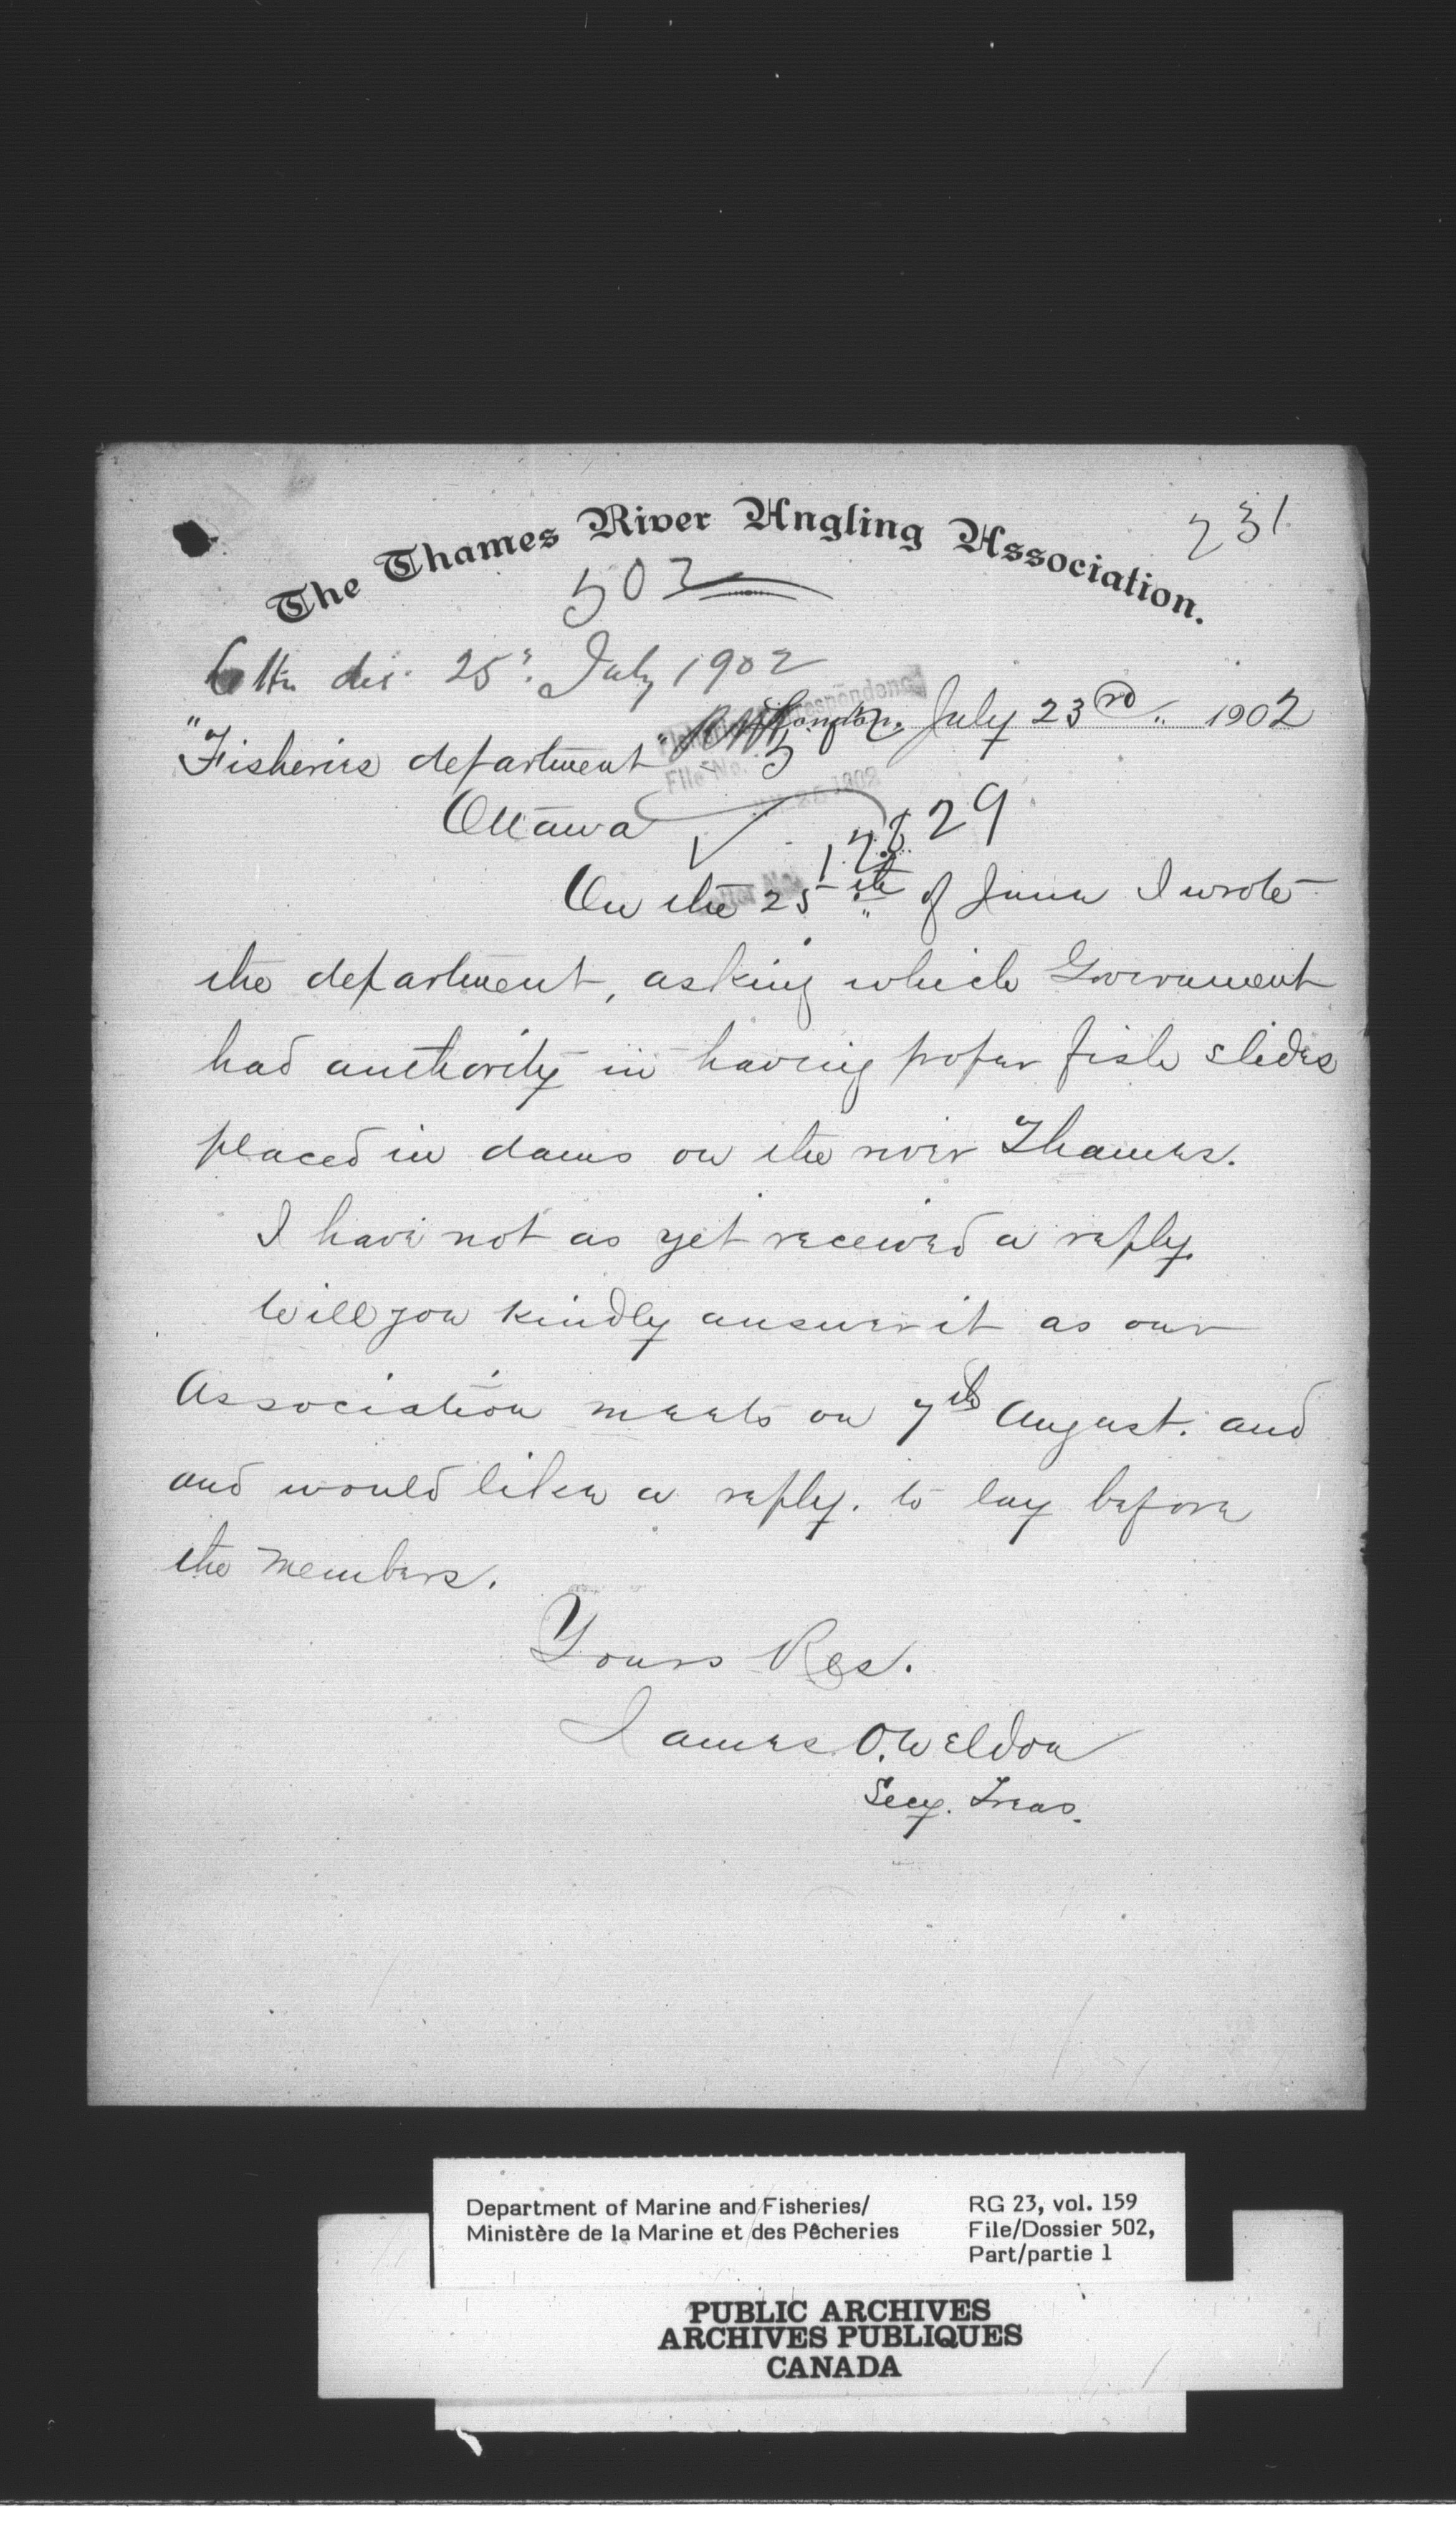 231
The Thames River Angling Association.
502
25 July 1902
London, July 23rd 1902
"Fisheries department"
File No.
Ottawa
29
On the 25th of June I wrote
the department, asking which Government
had authority in having proper fish slides
placed in dams on the river Thames.
I have not as yet received a reply.
Will you kindly answer it as our
Association meets on 7th August. and
and would like a reply. to lay before
the members.
Yours Res.
James O. Weldon
Secy. Treas.
Department of Marine and Fisheries/
Ministère de la Marine et des Pêcheries
RG 23, vol. 159
File/Dossier 502,
Part/partie 1
PUBLIC ARCHIVES
ARCHIVES PUBLIQUES
CANADA